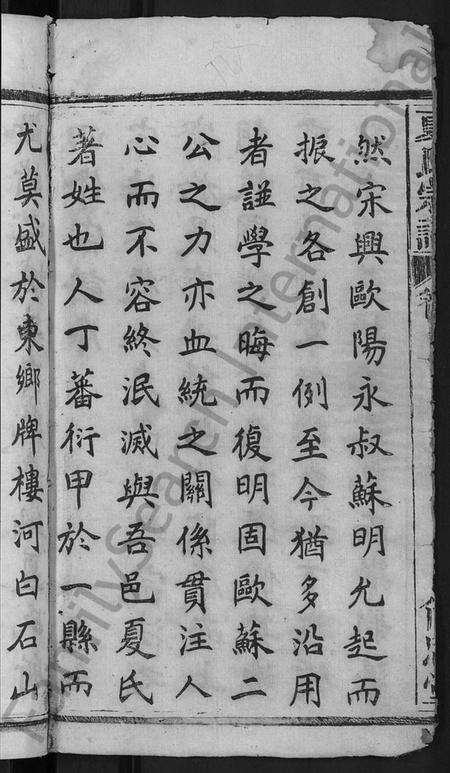 然宋興歐陽永叔蘇明允起而
振之各創一例至今猶多沿用
者譜學之晦而復明固歐蘇二
公之力亦血統之關係貫注人
心而不容終泯滅與吾邑夏氏
著姓也人丁蕃衍甲於一縣而
尤莫盛於東鄉牌樓河白石山
FamilySearch International